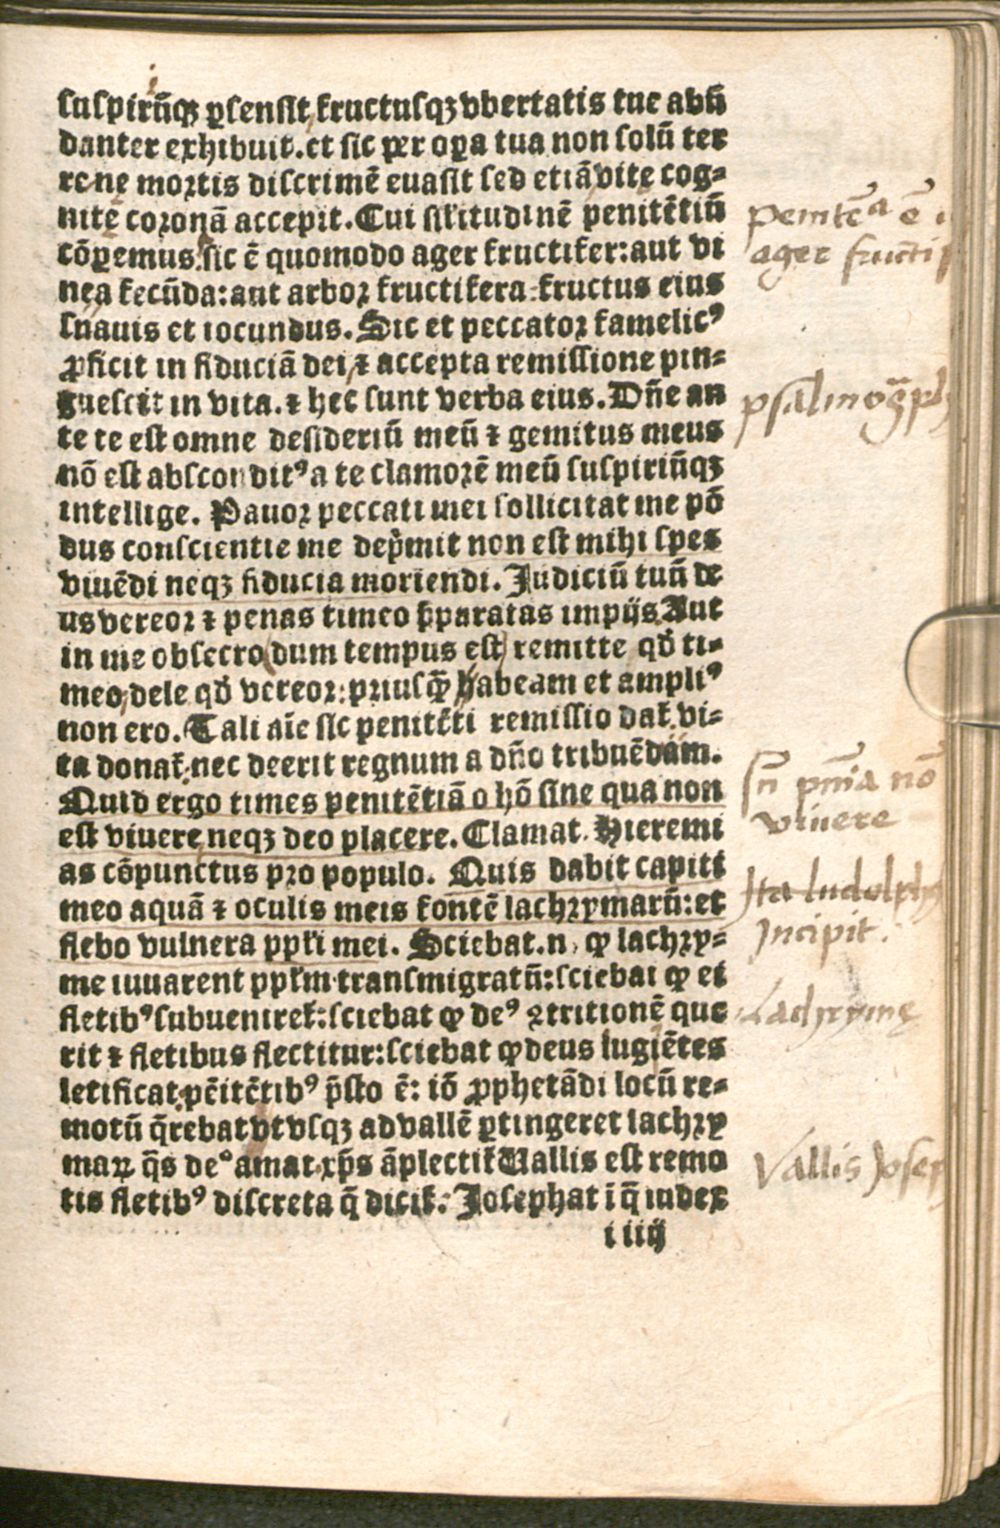 suspiriũqꝫ ꝑsensit fructusqꝫ vbertatis tue abũ
danter exhibuit. et sic per oꝑa tua non solũ ter
renę mortis discrimẽ euasit sed etiã vitę cog⸗
nitę coronã accepit. Cui sił̃itudinẽ penitẽtiũ
cõꝑemus, sic ẽ quomodo ager fructifer: aut vi
nea fecũda: aut arbor fructifera: fructus eius
suauis et iocundus. Sic et peccator famelicꝰ
ꝓficit in fiduciã dei, ⁊ accepta remissione pin⸗
guescit in vita. ⁊ hec sunt verba eius. Dñe an
te te est omne desideriũ meũ ⁊ gemitus meus
nõ est absconditꝰ a te clamorẽ meũ suspiriũqꝫ
intellige. Pauor peccati mei sollicitat me põ
dus conscientie me dep̃mit non est mihi spes
viuẽdi neqꝫ fiducia moriendi. Judiciũ tuũ de
us vereor ⁊ penas timeo p̃paratas impijs Aut
in me obsecro (dum tempus est) remitte qđ ti⸗
meo, dele qđ vereor: priusꝙ̃ habeam et ampliꝰ
non ero. Tali aĩe sic penitẽti remissio dat̃, vi⸗
ta donat̃, nec deerit regnum a dño tribuẽdum.
Quid ergo times penitẽtiã o hõ sine qua non
est viuere neqꝫ deo placere. Clamat Hieremi
as cõpunctus pro populo. Quis dabit capiti
meo aquã ⁊ oculis meis fontẽ lachrymarũ: et
flebo vulnera ppł̃i mei. Sciebat .n. ꝙ lachry⸗
me iuuarent ppł̃m transmigratũ: sciebat ꝙ ei
fletibꝰ subueniret̃: sciebat ꝙ deꝰ ꝯtritionẽ que
rit ⁊ fletibus flectitur: sciebat ꝙ deus lugẽtes
letificat, pẽitẽtibꝰ p̃sto ẽ: iõ ꝓphetãdi locũ re⸗
motũ q̃rebat vt vsqꝫ ad vallẽ ꝑtingeret lachry
maꝝ q̃s deꝰ amat, xp̃s ãplectit̃ Uallis est remo
tis fletibꝰ discreta q̃ dicit̃: Josephat ĩ q̃ iudex
i iiij
penitẽᵃ ẽ
ager fructi
sñ pñia nõ
viuere
Ita ludolphꝰ
Incipit.
Lachrymę
Vallis Josep